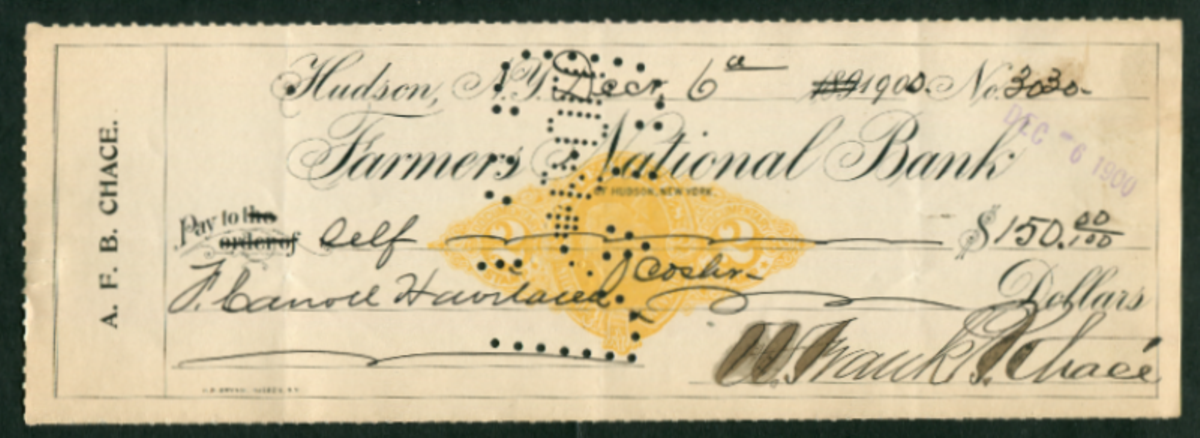 A. F. B. CHACE.
Hudson, N.Y. Decr. 6th 189 1900. No. 3030-
DEC -6 1900
Farmers National Bank
OF HUDSON, NEW YORK.
Pay to the order of Self $150.00/100
2 2
F. Carroll Haviland Cashr- Dollars
W. Frank Chace